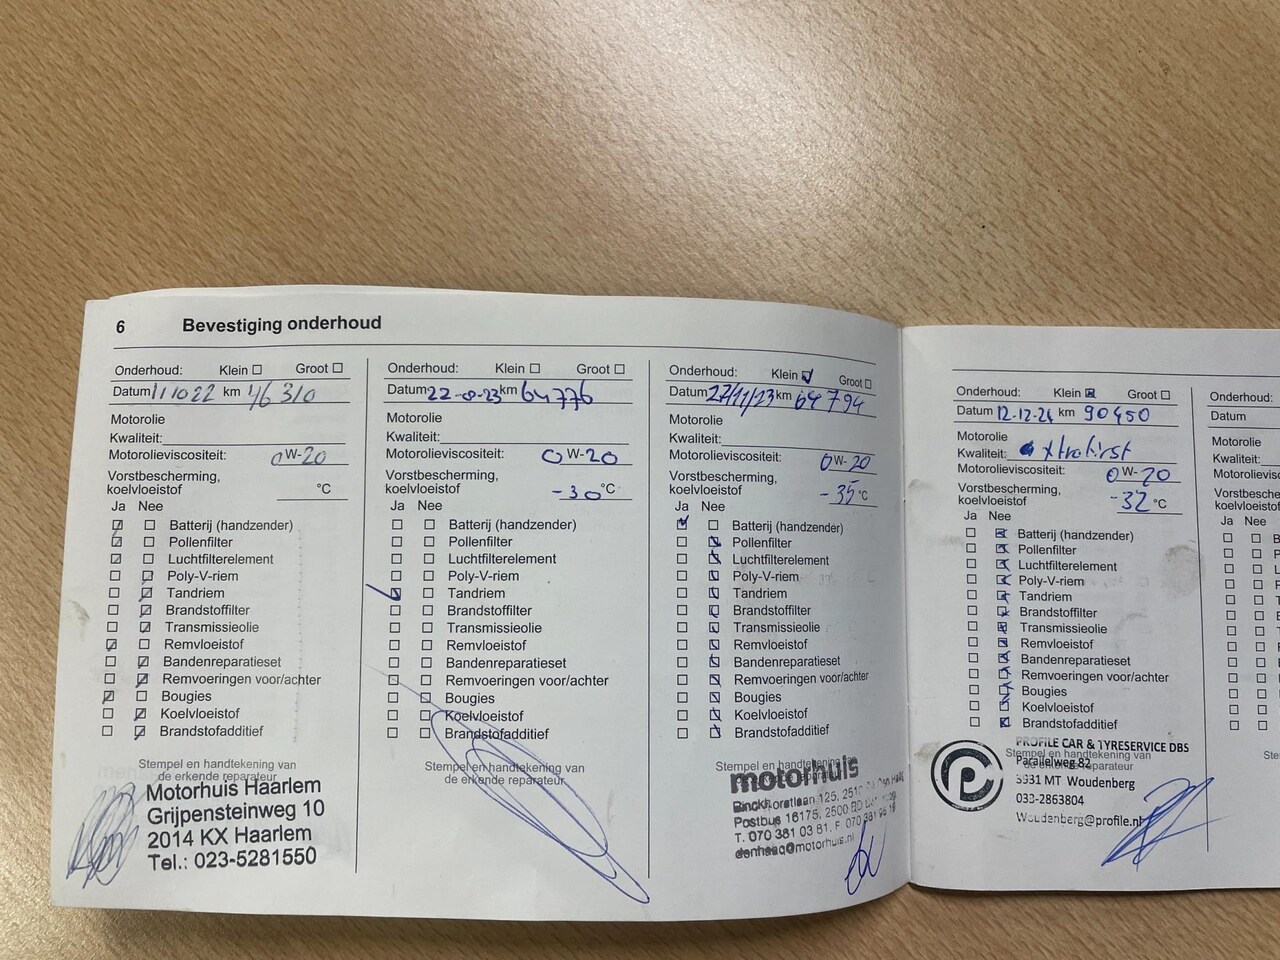 6 Bevestiging onderhoud
Onderhoud: Klein Groot
Datum 111022 km 46 310
Motorolie
Kwaliteit:
Motorolieviscositeit: 0W-20
Vorstbescherming,
koelvloeistof °C
Ja Nee
Batterij (handzender)
Pollenfilter
Luchtfilterelement
Poly-V-riem
Tandriem
Brandstoffilter
Transmissieolie
Remvloeistof
Bandenreparatieset
Remvoeringen voor/achter
Bougies
Koelvloeistof
Brandstofadditief
Stempel en handtekening van
de erkende reparateur
Motorhuis Haarlem
Grijpensteinweg 10
2014 KX Haarlem
Tel.: 023-5281550
Onderhoud: Klein Groot
Datum 22-8-23 km 64776
Motorolie
Kwaliteit:
Motorolieviscositeit: 0W-20
Vorstbescherming,
koelvloeistof -30°C
Ja Nee
Batterij (handzender)
Pollenfilter
Luchtfilterelement
Poly-V-riem
Tandriem
Brandstoffilter
Transmissieolie
Remvloeistof
Bandenreparatieset
Remvoeringen voor/achter
Bougies
Koelvloeistof
Brandstofadditief
Stempel en handtekening van
de erkende reparateur
Onderhoud: Klein Groot
Datum 27/11/23 km 64794
Motorolie
Kwaliteit:
Motorolieviscositeit: 0W-20
Vorstbescherming,
koelvloeistof -35°C
Ja Nee
Batterij (handzender)
Pollenfilter
Luchtfilterelement
Poly-V-riem
Tandriem
Brandstoffilter
Transmissieolie
Remvloeistof
Bandenreparatieset
Remvoeringen voor/achter
Bougies
Koelvloeistof
Brandstofadditief
Stempel en handtekening van
motorhuis
Binckhorstlaan 125, 
Postbus 16175, 2500 BD
T. 070 381 03 81. F. 070
denhaag@motorhuis.nl
Onderhoud: Klein Groot
Datum 12-12-24 km 90450
Motorolie
Kwaliteit: xtrafirst
Motorolieviscositeit: 0W-20
Vorstbescherming,
koelvloeistof -32°C
Ja Nee
Batterij (handzender)
Pollenfilter
Luchtfilterelement
Poly-V-riem
Tandriem
Brandstoffilter
Transmissieolie
Remvloeistof
Bandenreparatieset
Remvoeringen voor/achter
Bougies
Koelvloeistof
Brandstofadditief
Stempel en handtekening van
de erkende reparateur
PROFILE CAR & TYRESERVICE DBS
Parallelweg 82
3931 MT Woudenberg
033-2863804
Woudenberg@profile.nl
Onderhoud:
Datum
Motorolie
Kwaliteit:
Motorolievisc
Vorstbescherm
koelvloeistof
Ja Nee